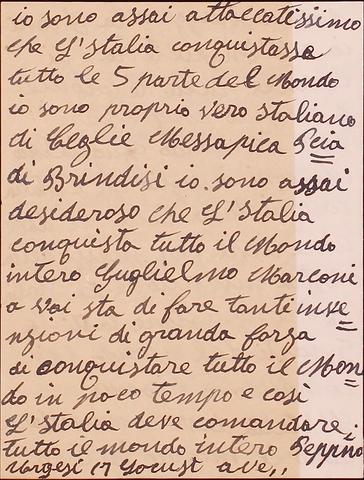 io sono assai attaccatissimo
che L'Italia conquistassa
tutto le 5 parte del Mondo
io sono proprio vero Italiano
di Ceglie Messapica Pcia
di Brindisi io sono assai
desideroso che L'Italia
conquista tutto il Mondo
intero Guglielmo Marconi
a voi sta di fare tanti inve=
nzioni di granda forza
di conquistare tutto il Mon=
do in poco tempo e così
L'Italia deve comandare
tutto il mondo intero Peppino
17 Locust ave,,